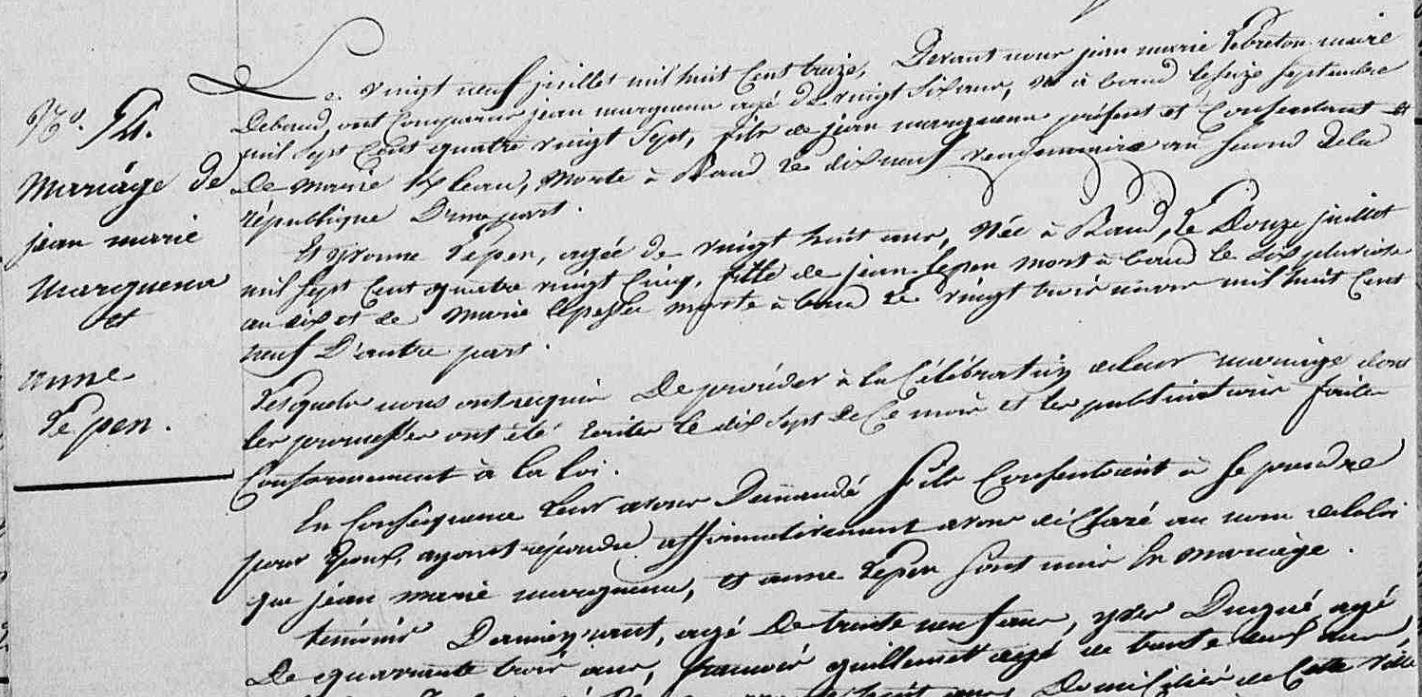 No. 
mariage de
jean marie
marguena
et
anne
Lepen.
Le vingt neuf juillet mil huit Cent treize, Devant nous jean marie Lebreton maire
Debaud, ont Comparu jean marguena agé de vingt six ans, né à baud le seize septembre
mil sept Cent quatre vingt sept, fils de jean marguena présent et Consentant et
De marie , morte à Baud le dix neuf vendemiaire an second dela
république D'une part.
Et yvonne Lepen, agée de vingt huit ans, Née à Baud, le Douze juillet
mil sept Cent quatre vingt Cinq, fille de jean lepen mort à baud le six pluviose
an dix et de marie morte à baud le vingt trois nivose mil huit Cent
neuf D'autre part.
Lesquels nous ont requis De procéder à la Célébration deleur mariage dont
les promesses ont été Ecrites le dix sept de Ce mois et les publications faites
Conformement à la loi.
En Conséquence Leur avons Demandé s'ils Consentoient à se prendre
pour Epoux, ayant répondu affirmativement avons déclaré au nom delaloi
que jean marie marguena, et anne Lepen sont unis En mariage.
temoins agé De trente neuf ans, yves Duqué agé
De quarante trois ans, francois guillemet agé de trente neuf ans,
huit ans Domiciliés de Cette ville